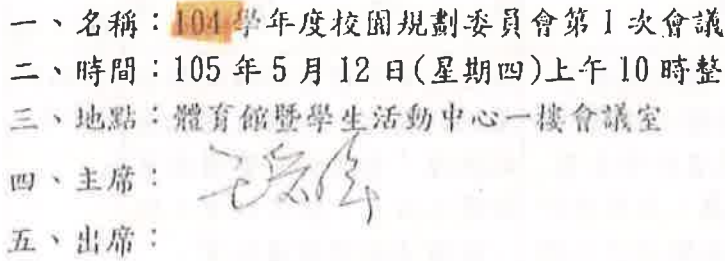 一、名稱：104 學年度校園規劃委員會第 1 次會議
二、時間：105 年 5 月 12 日(星期四)上午 10 時整
三、地點：體育館暨學生活動中心一樓會議室
四、主席：
五、出席：